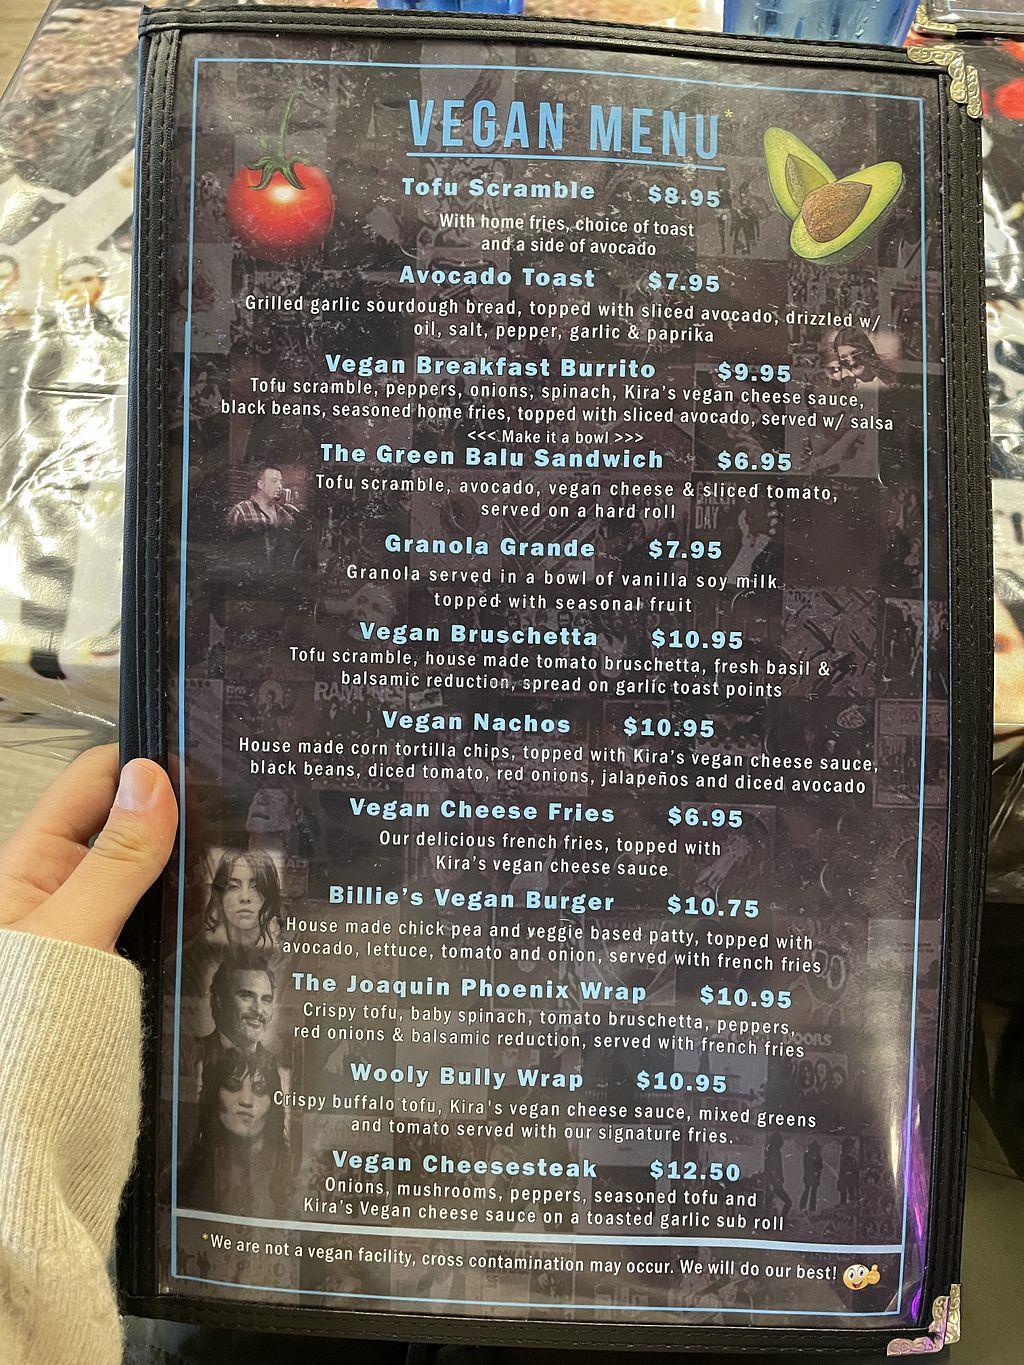 VEGAN MENU*
Tofu Scramble $8.95
With home fries, choice of toast
and a side of avocado
Avocado Toast $7.95
Grilled garlic sourdough bread, topped with sliced avocado, drizzled w/
oil, salt, pepper, garlic & paprika
Vegan Breakfast Burrito $9.95
Tofu scramble, peppers, onions, spinach, Kira's vegan cheese sauce,
black beans, seasoned home fries, topped with sliced avocado, served w/ salsa
<<< Make it a bowl >>>
The Green Balu Sandwich $6.95
Tofu scramble, avocado, vegan cheese & sliced tomato,
served on a hard roll
GREEN DAY
Granola Grande $7.95
Granola served in a bowl of vanilla soy milk
topped with seasonal fruit
Vegan Bruschetta $10.95
Tofu scramble, house made tomato bruschetta, fresh basil &
balsamic reduction, spread on garlic toast points
RAMONES
Vegan Nachos $10.95
House made corn tortilla chips, topped with Kira's vegan cheese sauce,
black beans, diced tomato, red onions, jalapeños and diced avocado
Vegan Cheese Fries $6.95
Our delicious french fries, topped with
Kira's vegan cheese sauce
Billie's Vegan Burger $10.75
House made chick pea and veggie based patty, topped with
avocado, lettuce, tomato and onion, served with french fries
The Joaquin Phoenix Wrap $10.95
Crispy tofu, baby spinach, tomato bruschetta, peppers,
red onions & balsamic reduction, served with french fries
DOORS
Wooly Bully Wrap $10.95
Crispy buffalo tofu, Kira's vegan cheese sauce, mixed greens
and tomato served with our signature fries.
Vegan Cheesesteak $12.50
Onions, mushrooms, peppers, seasoned tofu and
Kira's Vegan cheese sauce on a toasted garlic sub roll
*We are not a vegan facility, cross contamination may occur. We will do our best!